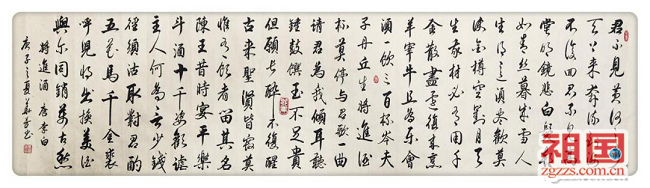 君不見黄河
天上来奔流
不復回君不見
堂明鏡悲白髮
如青丝暮成雪人
生得意須盡歡莫
使金樽空對月天
生我材必有用千
金散盡還復来烹
羊宰牛且為樂會
須一飲三百杯岑夫
子丹丘生將進酒
杯莫停與君歌一曲
請君為我傾耳聽
鐘鼓饌玉不足貴
但願長醉不復醒
古来聖賢皆寂寞
惟有飲者留其名
陳王昔時宴平樂
斗酒十千恣歡謔
主人何為言少錢
徑須沽取對君酌
五花馬千金裘
呼兒將出換美酒
與爾同銷萬古愁
將進酒 唐李白
庚子之夏
祖国网
zgzzs.com.cn